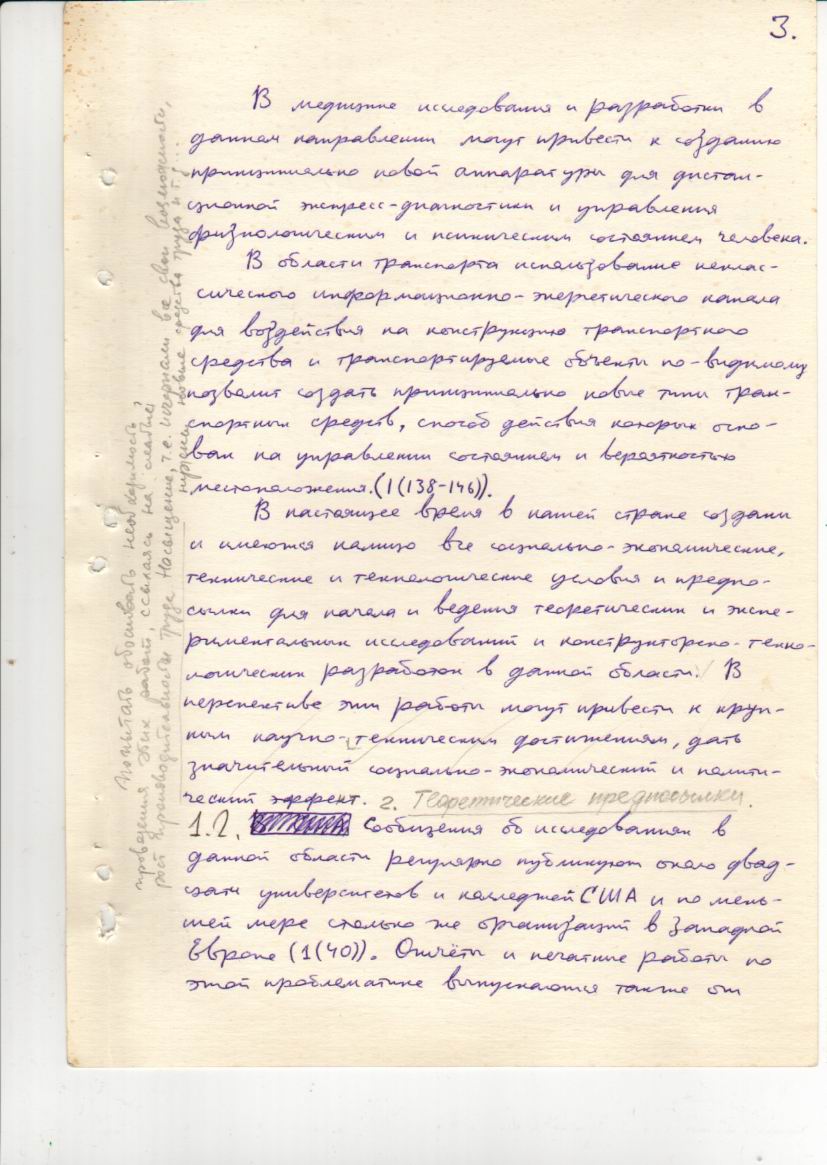 3.
В медицине исследования и разработки в
данном направлении могут привести к созданию
принципиально новой аппаратуры для дистан-
ционной экспресс-диагностики и управления
физиологическим и психическим состоянием человека.
В области транспорта использование неклас-
сического информационно-энергетического канала
для воздействия на конструкцию транспортного
средства и транспортируемые объекты по-видимому
позволит создать принципиально новые типы тран-
спортных средств, способ действия которых осно-
ван на управлении состоянием и вероятностью
местоположения. (1(138-146)).
В настоящее время в нашей стране созданы
и имеются налицо все социально-экономические,
технические и технологические условия и предпо-
сылки для начала и ведения теоретических и экспе-
риментальных исследований и конструкторско-техно-
логических разработок в данной области. В
перспективе эти работы могут привести к круп-
ным научно-техническим достижениям, дать
значительный социально-экономический и полити-
ческий эффект. 2. Теоретические предпосылки.
1.2. Сообщения об исследованиях в
данной области регулярно публикуют около двад-
цати университетов и колледжей США и по мень-
шей мере столько же организаций в Западной
Европе (1(40)). Отчёты и печатные работы по
этой проблематике выпускаются также от
Попытать обосновать необходимость
проведения этих работ, ссылаясь на слабый
рост производительности труда. Насыщение, т.е. исчерпали все свои возможности,
нужны новые средства труда и т.д...